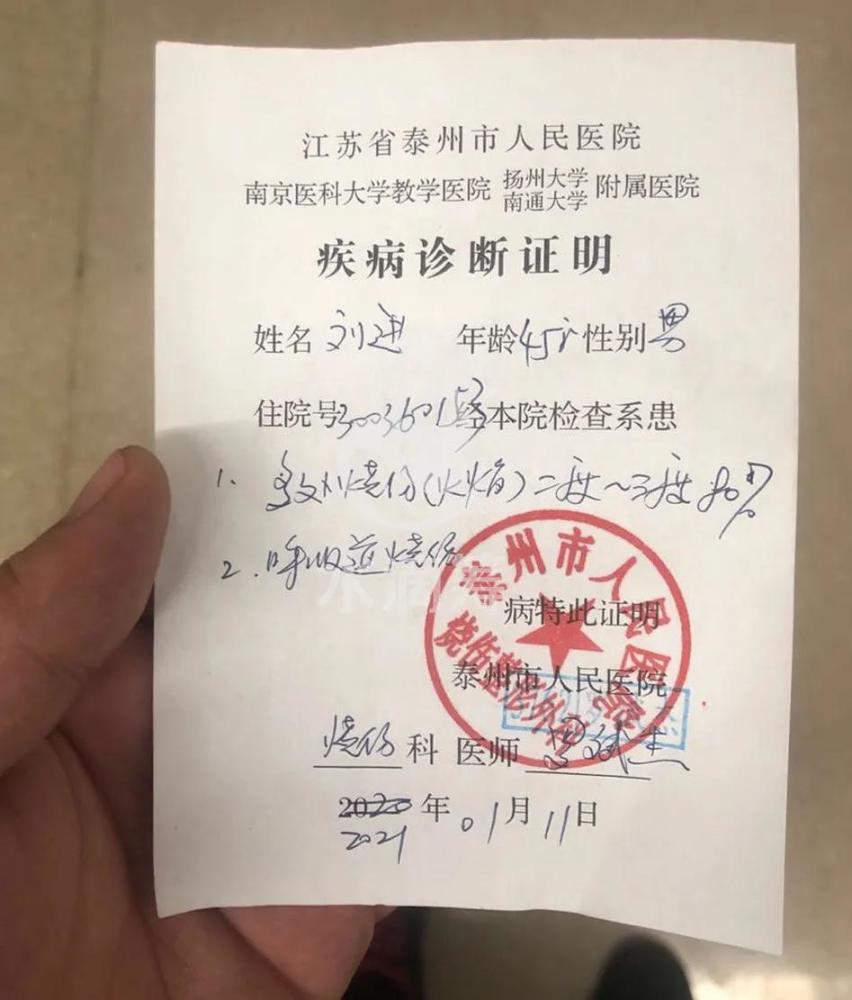 江苏省泰州市人民医院
南京医科大学教学医院 扬州大学 南通大学 附属医院
疾病诊断证明
姓名 刘进 年龄 45岁 性别 男
住院号 30036015 经本院检查系患
1. 多处烧伤(火焰)二度~三度 80%
2. 呼吸道烧伤
病特此证明
泰州市人民医院
烧伤 科 医师
2020 年 01 月 11 日
2021
泰州市人民医院
烧伤整形外科
水滴筹